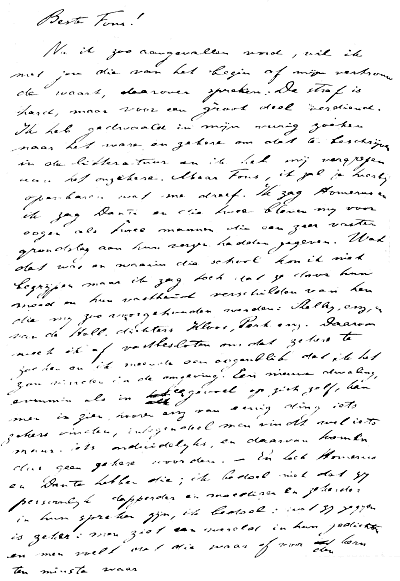 Beste Fons!
Nu ik zoo aangevallen word, wil ik
met jou die van het begin af mijn vertrouwen
de waart, daarover spreken. De straf is
hard, maar voor een groot deel verdiend.
Ik heb gedwaald in mijn zoeken
naar het ware en zekere om dat te beschrijven
in de litteratuur en ik heb mij vergrepen
aan het onzekere. Maar Fons, ik zal je hierbij
openbaren wat me dreef. Ik zag Homerus en
ik zag Dante en die twee bleven mij voor
oogen als twee mannen die van een vasten
grondslag aan hun zorgen hadden gegeven. Wat
dat was en waarin die school kon ik niet
begrijpen maar ik zag toch dat ze door hun
moed en hun vastheid verschilden van hen
die mij zoo voorgehouden werden: Shelley, enz, en
van de Holl. dichters Kloos, Perk enz. Daarom
nam ik af vastbesloten om dat zekere te
zoeken en ik meende een oogenblik dat ik het
zou vinden in de omgeving. Een nieuwe dwaling,
evenmin als in gevoel op zich zelf, kan
men in zien, weer enz van eenig ding iets
zekers vinden, integendeel men vindt wel iets
maar iets onduidelijks, en daarvan komen
dus geen zekere woorden. — En toch Homerus
en Dante hebben die; ik bedoel niet dat zij
persoonlijk dapperder en moediger en zekerder
in hun spreken zijn, ik bedoel: wat zij zeggen
is zeker: men ziet een wereld in hun gedichten
en men voelt dat die waar is voor hem
ten minste waar